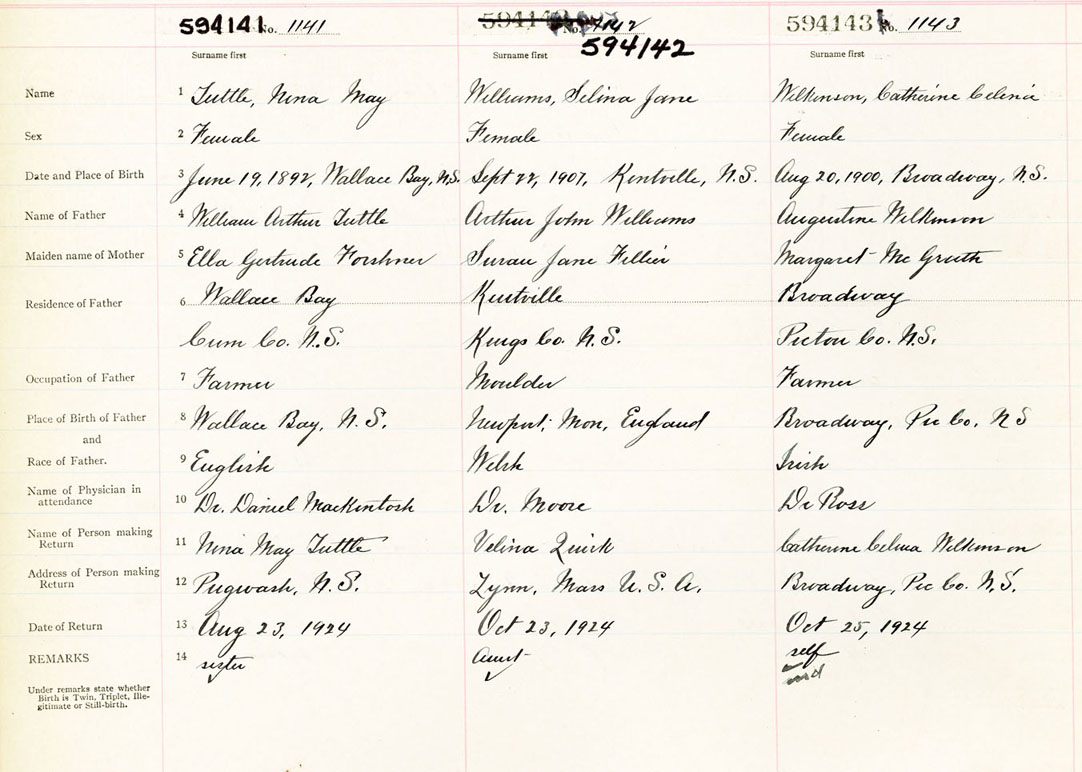 594141 No. 1141 594142 No. 1142 594143 No. 1143
594142
Surname first Surname first Surname first
Name 1 Tuttle, Nina May Williams, Selina Jane Wilkinson, Catherine Celenia
Sex 2 Female Female Female
Date and Place of Birth 3 June 19, 1892, Wallace Bay, N.S. Sept 22, 1907, Kentville, N.S. Aug 20, 1900, Broadway, N.S.
Name of Father 4 William Arthur Tuttle Arthur John Williams Augustine Wilkinson
Maiden name of Mother 5 Ella Gertrude Forshner Susan Jane Margaret Mc Grath
Residence of Father 6 Wallace Bay Kentville Broadway
Cum Co. N.S. Kings Co. N.S. Pictou Co. N.S.
Occupation of Father 7 Farmer Moulder Farmer
Place of Birth of Father 8 Wallace Bay, N.S. Newport, Mon, England Broadway, Pic Co, NS
and
Race of Father. 9 English Welsh Irish
Name of Physician in
attendance 10 Dr. Daniel MacKintosh Dr. Moore Dr Ross
Name of Person making
Return 11 Nina May Tuttle Velina Quirk Catherine Wilkinson
Address of Person making
Return 12 Pugwash, N.S. Lynn, Mass U.S.A. Broadway, Pic Co. N.S.
Date of Return 13 Aug 23, 1924 Oct 23, 1924 Oct 25, 1924
REMARKS 14 sister Aunt self
Under remarks state whether
Birth is Twin, Triplet, Ille-
gitimate or Still-birth.